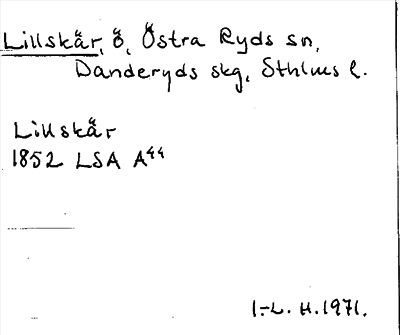 Lillskär, ö, Östra Ryds sn,
Danderyds skg, Sthlms l.
Lillskär
1852 LSA A44
I.-L. H. 1971.